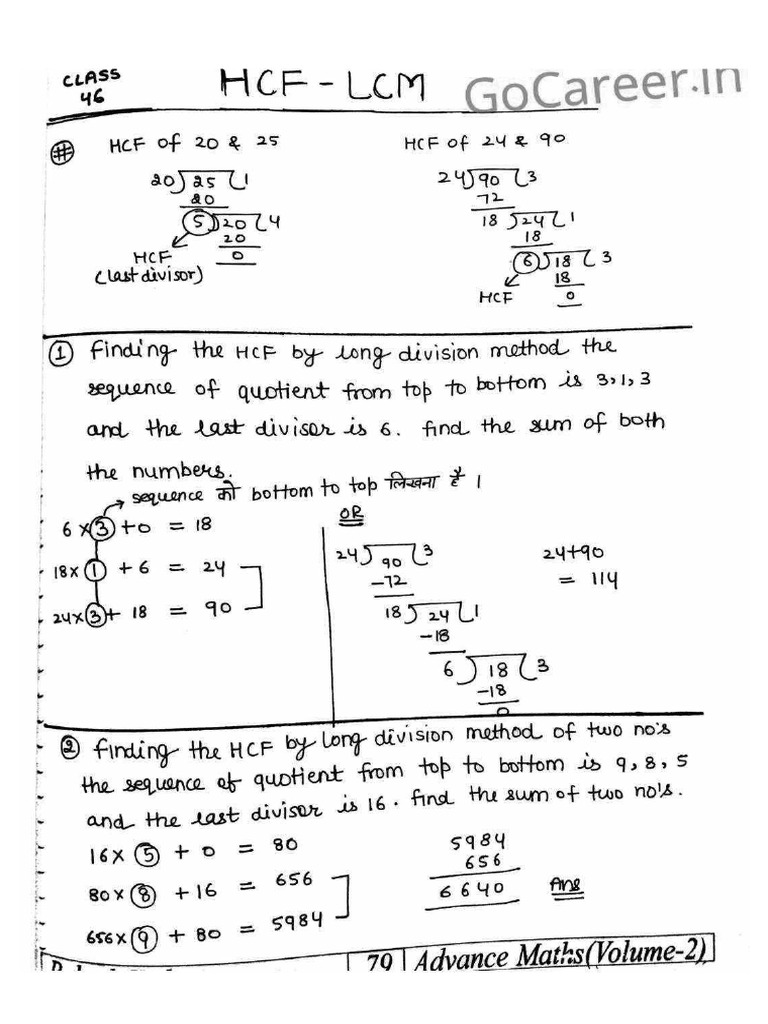 CLASS
46
HCF - LCM
GoCareer.in
HCF of 20 & 25
20 25 1
20
5 20 4
20
0
HCF
(last divisor)
HCF of 24 & 90
24 90 3
72
18 24 1
18
6 18 3
18
0
HCF
① finding the HCF by long division method the
sequence of quotient from top to bottom is 3,1,3
and the last divisor is 6. find the sum of both
the numbers.
sequence को bottom to top लिखना है ।
6 × 3 + 0 = 18
18 × 1 + 6 = 24
24 × 3 + 18 = 90
OR
24 90 3
-72
18 24 1
-18
6 18 3
-18
0
24+90
= 114
② finding the HCF by long division method of two no's
the sequence of quotient from top to bottom is 9, 8, 5
and the last divisor is 16. find the sum of two no's.
16 × 5 + 0 = 80
80 × 8 + 16 = 656
656 × 9 + 80 = 5984
5984
656
6640 Ans
79 Advance Maths(Volume-2)